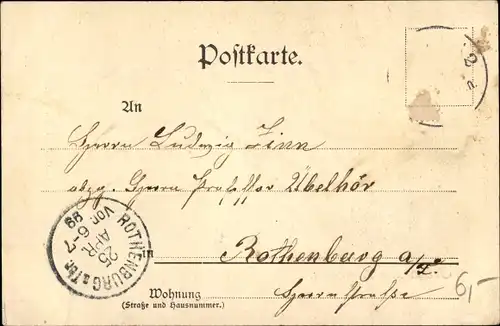 Postkarte.
2
An
Herrn Ludwig Zinn
abzg. Herrn Professor Übelhör
ROTHENBURG a.Tbr.
25
APR
6-7
Vor.
99
in
Rothenburg a/T.
Wohnung
(Straße und Hausnummer.)
Herrnstraße
6,-